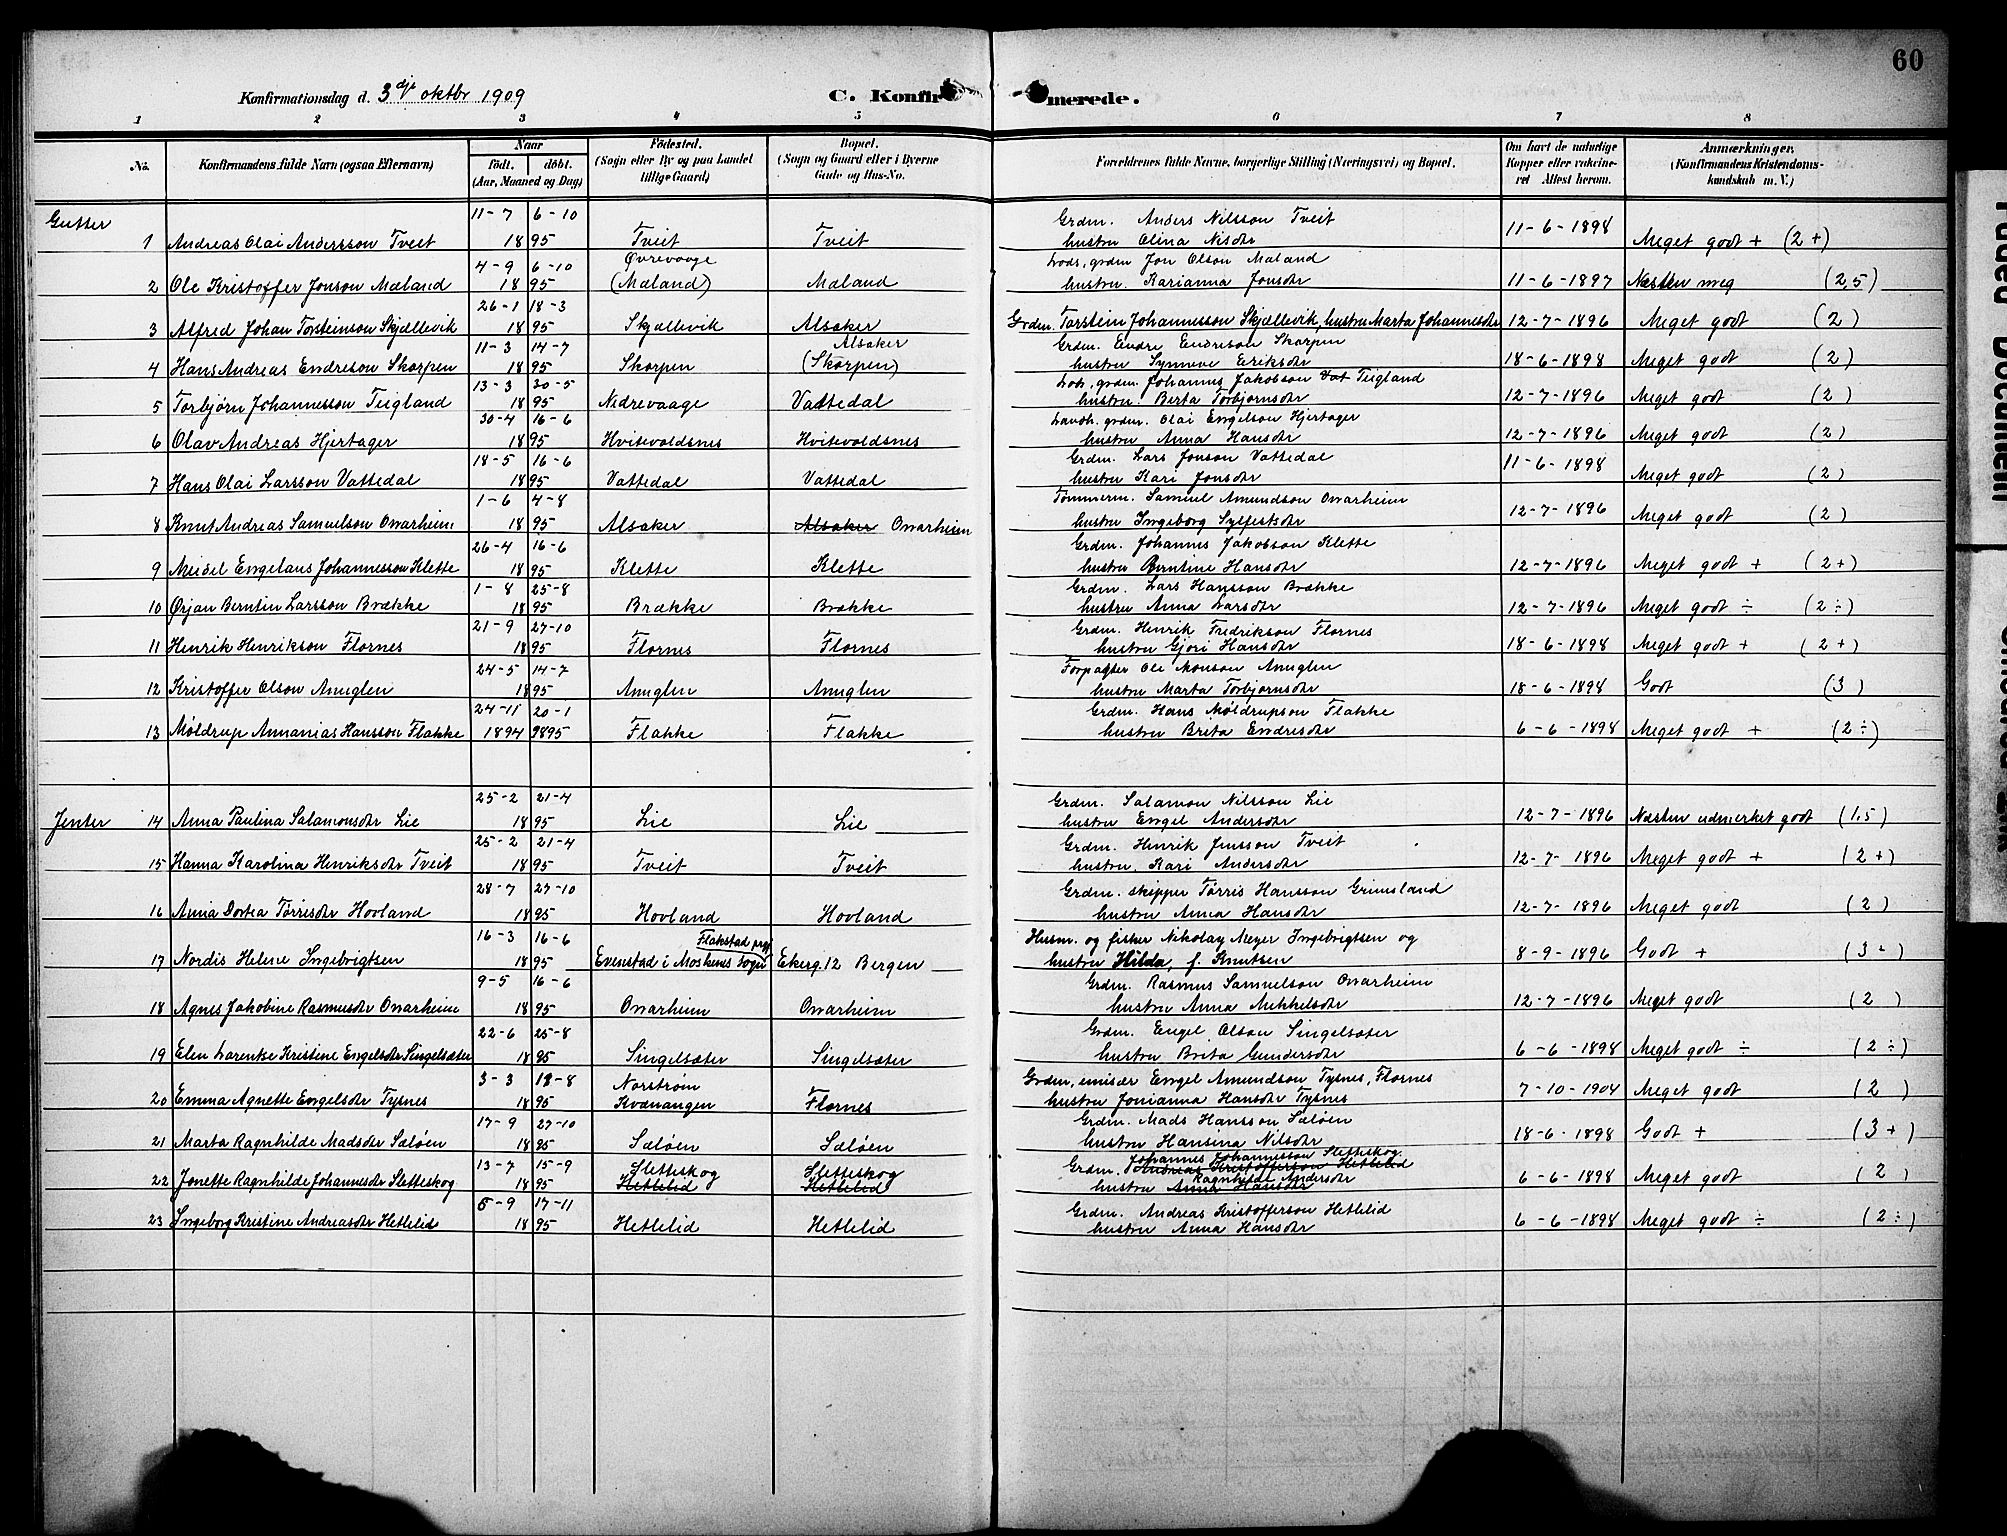 60
Konfirmationsdag d. 3dje oktbr 1909
C. Konfirmerede.
1 2 3 4 5 6 7 8
No. Konfirmandens fulde Navn (ogsaa Efternavn) Naar født. døbt. (Aar, Maaned og Dag) Fødested. (Sogn eller By og paa Landet tillige Gaard) Bopæl. (Sogn og Gaard eller i Byerne Gade og Hus-No. Forældrenes fulde Navne, borgerlige Stilling (Næringsvei) og Bopæl. Om havt de naturlige Kopper eller vakcineret. Attest herom. Anmærkninger. (Konfirmandens Kristendomskundskab m. V.)
Gutter
11-7 6-10 Grdm. Anders Nilsson Tveit
1 Andreas Olai Andersson Tveit 1895 Tveit Tveit hustru Olina Nisdtr 11-6-1898 Meget godt + (2+)
4-9 6-10 Øvrevaage Lods, grdm Jon Olson Mæland
2 Ole Kristoffer Jonson Mæland 1895 (Mæland) Mæland hustru Karianna Jonsdtr 11-6-1897 Næsten meg (2,5)
26-1 18-3
3 Alfred Johan Torsteinson Skjællevik 1895 Skjællevik Alsaker Grdm. Torstein Johannesson Skjællevik, hustru Marta Johannesdtr 12-7-1896 Meget godt (2)
11-3 14-7 Alsaker Grdm. Endre Endreson Skorpen
4 Hans Andreas Endreson Skorpen 1895 Skorpen (Skorpen) hustru Synneve Eriksdtr 18-6-1898 Meget godt (2)
13-3 20-5 Lods, grdm. Johannes Jakobson Teigland
5 Torbjørn Johannesson Teigland 1895 Nedrevaage Vattedal hustru Berta Torbjørnsdtr 12-7-1896 Meget godt (2)
30-4 16-6 grdm. Olai Engelson Hjertager
6 Olav Andreas Hjertager 1895 Hvitevoldsnes Hvitevoldsnes hustru Anna Hansdtr 12-7-1896 Meget godt (2)
18-5 16-6 Grdm. Lars Jonson Vattedal
7 Hans Olai Larsson Vattedal 1895 Vattedal Vattedal hustru Kari Jonsdtr 11-6-1898 Meget godt (2)
1-6 4-8 Tømmerm. Samuel Amundson Onarheim
8 Knut Andreas Samuelson Onarheim 1895 Alsaker Alsaker Onarheim hustru Ingeborg Sylfestsdtr 12-7-1896 Meget godt (2)
26-4 16-6 Grdm. Johannes Jakobson Klette
9 Meidel Engelaus Johannesson Klette 1895 Klette Klette hustru Berntine Hansdtr 12-7-1896 Meget godt + (2+)
1-8 25-8 Grdm. Lars Hansson Brække
10 Ørjan Berntin Larsson Brække 1895 Brække Brække hustru Anna Larsdtr 12-7-1896 Meget godt ÷ (2÷)
21-9 27-10 Grdm. Henrik Fredrikson Flornes
11 Henrik Henrikson Flornes 1895 Flornes Flornes hustru Gjøri Hansdtr 18-6-1898 Meget godt + (2+)
24-5 14-7 Forpagter Ole Monson Anuglen
12 Kristoffer Olson Anuglen 1895 Anuglen Anuglen hustru Marta Torbjørnsdtr 18-6-1898 Godt (3)
24-11 20-1 Grdm. Hans Møldrupson Flakke
13 Møldrup Annanias Hansson Flakke 1894 1895 Flakke Flakke hustru Brita Endresdtr 6-6-1898 Meget godt + (2÷)
Jenter
25-2 21-4 Grdm. Salamon Nilsson Lie
14 Anna Paulina Salamonsdtr Lie 1895 Lie Lie hustru Engel Andersdtr 12-7-1896 Næsten udmerket godt (1,5)
25-2 21-4 Grdm. Henrik Jensson Tveit
15 Hanna Karolina Henriksdtr Tveit 1895 Tveit Tveit hustru, Kari Andersdtr 12-7-1896 Meget godt + (2+)
28-7 27-10 Grdm. skipper Tørris Hansson Grimsland
16 Anna Dortea Tørrisdtr Hovland 1895 Hovland Hovland hustru Anna Hansdtr 12-7-1896 Meget godt (2)
16-3 16-6 Flakstad prgj Husm. og fisker Nikolay Meyer Ingebrigtsen og
17 Nordis Helene Ingebrigtsen 1895 Evenstad i Moskenes sogn Ekerg. 12 Bergen hustru Hilda, f. Knutsen 8-9-1896 Godt + (3÷)
9-5 16-6 Grdm. Rasmus Samuelson Onarheim
18 Agnes Jakobine Rasmusdtr Onarheim 1895 Onarheim Onarheim hustru Anna Mikkelsdtr 12-7-1896 Meget godt (2)
22-6 25-8 Grdm. Engel Olson Singelsæter
19 Elen Larenke Kristine Engelsdtr Singelsæter 1895 Singelsæter Singelsæter hustru Brita Gundersdtr 6-6-1898 Meget godt ÷ (2÷)
3-3 18-8 Norstrøm Grdm, emisær Engel Amundson Tysnes, Flornes
20 Emma Agnette Engelsdtr Tysnes 1895 Kvænangen Flornes hustru Jonianna Hansdtr Tysnes 7-10-1904 Meget godt (2)
17-9 27-10 Grdm. Mads Hansson Sæløen
21 Marta Ragnhilde Madsdtr Sæløen 1895 Sæløen Sæløen hustru Hansina Nilsdtr 18-6-1898 Godt + (3+)
13-7 15-9 Sletteskog Sletteskog Grdm. Johannes Johannesson Sletteskog Andreas Kristofferson Hetlelid
22 Jonette Ragnhilde Johannesdtr Sletteskog 1895 Hetlelid Hetlelid hustru Ragnhilde Andersdtr Anna Hansdtr 6-6-1898 Meget godt (2)
5-9 17-11 Grdm. Andreas Kristofferson Hetlelid
23 Ingeborg Kristine Andreasdtr Hetlelid 1895 Hetlelid Hetlelid hustru Anna Hansdtr 6-6-1898 Meget godt ÷ (2÷)